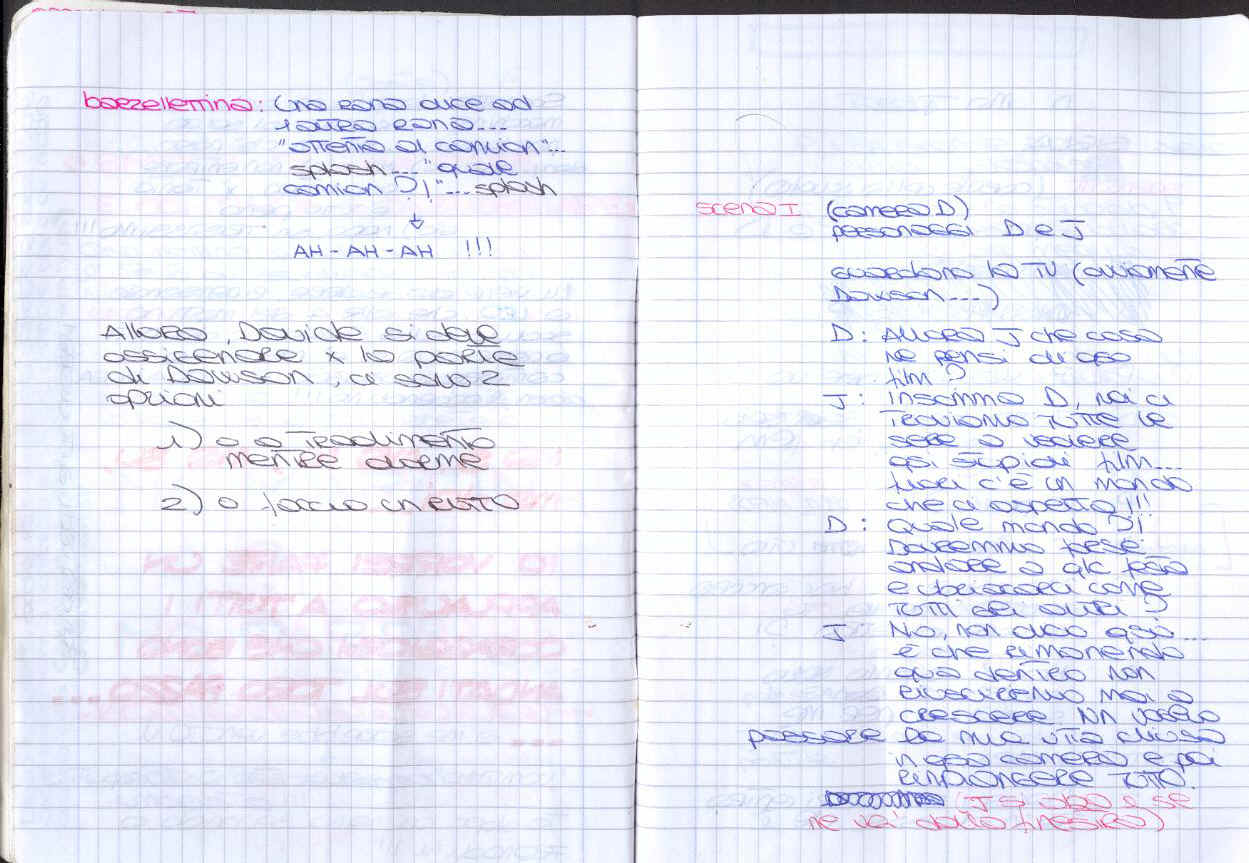 barzellettina: Una rana dice ad
1 altra rana...
"attento al camion"...
splash... "quale
camion ?!"... splash
AH - AH - AH !!!
Allora, Davide si deve
assicenare x la parte
di Dawson, ci sono 2
opzioni
1) o a tradimento
mentre dorme
2) o faccio un rutto
scena I (camera D)
personaggi D e J
guardano la TV (ovviamente
Dawson...)
D: Allora J che cosa
ne pensi di qso
film ?
J: Insomma D, noi ci
troviamo tutte le
sere a vedere
qsi stupidi film...
fuori c'è un mondo
che ci aspetta !!!
D: Quale mondo ?!
Dovremmo forse
andare a qlc festa
e ubriacarci come
tutti gli altri ?
J: No, non dico qso...
è che rimanendo
qua dentro non
riusciremo mai a
crescere. Nn voglio
passare la mia vita chiusa
in qsa camera e poi
rimpiangere tutto.
(J si alza e se
ne va dalla finestra)